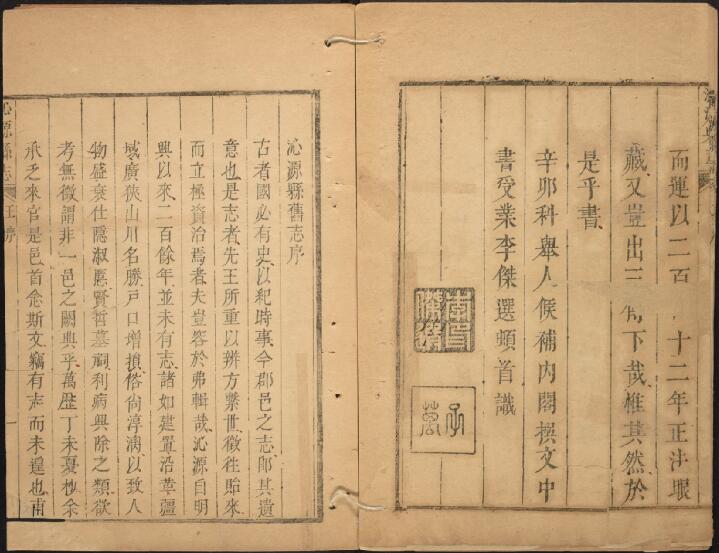 而運以二百 十二年正法眼
藏又豈出三 下哉惟其然於
是乎書
辛卯科舉人候補內閣撰文中
書受業李傑選頓首識
沁源縣舊志序
古者國必有史以紀時事今郡邑之志即其遺
意也是志者先王所重以辨方繫世徵往貽來
而立極資治焉者夫豈容於弗輯哉沁源自明
興以來二百餘年並未有志諸如建置沿革疆
域廣狹山川名勝戶口增損俗尚淳漓以致人
物盛衰仕隱淑慝賢哲墓祠利病興除之類欲
考無徵謂非一邑之闕典乎萬歷丁未夏杪余
承乏來官是邑首念斯文竊有志而未遑也甫
沁源縣志 王序